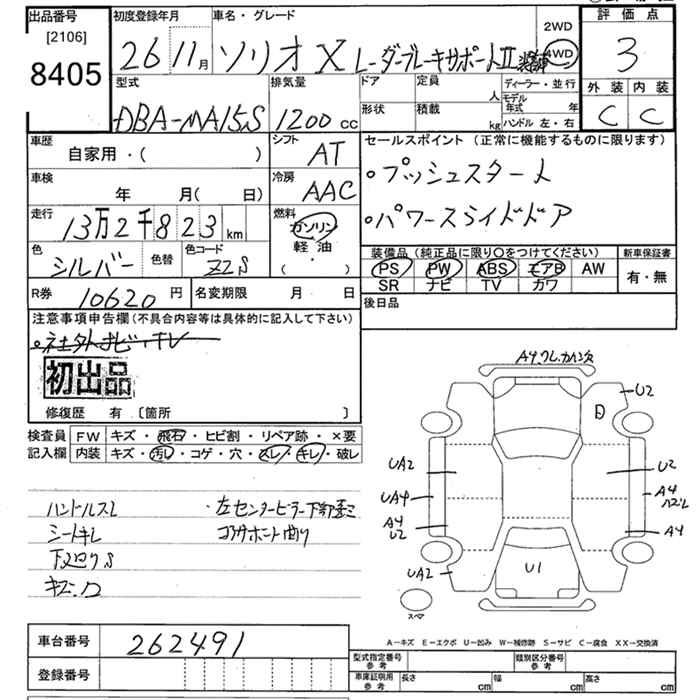 出品番号 初度登録年月 車名・グレード 2WD 4WD 評価点
[2106] 26 11月 ソリオ X レーダーブレーキサポートII装着車 3
8405
型式 排気量 ドア 定員 人 ディーラー・並行 外装 内装
DBA-MA15S 1200cc 形状 積載 kg モデル年式 年 ハンドル 左・右 C C
車歴 自家用・( ) シフト AT セールスポイント (正常に機能するものに限ります)
車検 年 月( 日) 冷房 AAC ・プッシュスタート
走行 13万2千823km 燃料 ガソリン 軽油 ・( ) ・パワースライドドア
色 シルバー 色替 色コード Z2S 装備品 (純正品に限り○をつけてください) 新車保証書
PS PW ABS エアB AW 有・無
SR ナビ TV カワ
R券 10620円 名変期限 月 日 後日品
注意事項申告欄(不具合内容等は具体的に記入して下さい)
・社外ナビ・キレ
初出品
修復歴 有 〔箇所 〕
検査員記入欄 FW キズ・飛石・ヒビ割・リペア跡・×要
内装 キズ・汚レ・コゲ・穴・スレ・キレ・破レ
ハンドルスレ ・左センターピラー下部
シートキレ コアサポート曲り
下廻りS
キズ.凹
A4
U2
UA2 U2
UA4 A4
A4 U2 A4
UA2 U1
スペア
A-キズ E-エクボ U-凹み W-補修跡 S-サビ C-腐食 XX-交換済
車台番号 262491 型式指定番号 参考 類別区分番号 参考
登録番号 車庫証明用 参考 長さ cm 幅 cm 高さ cm